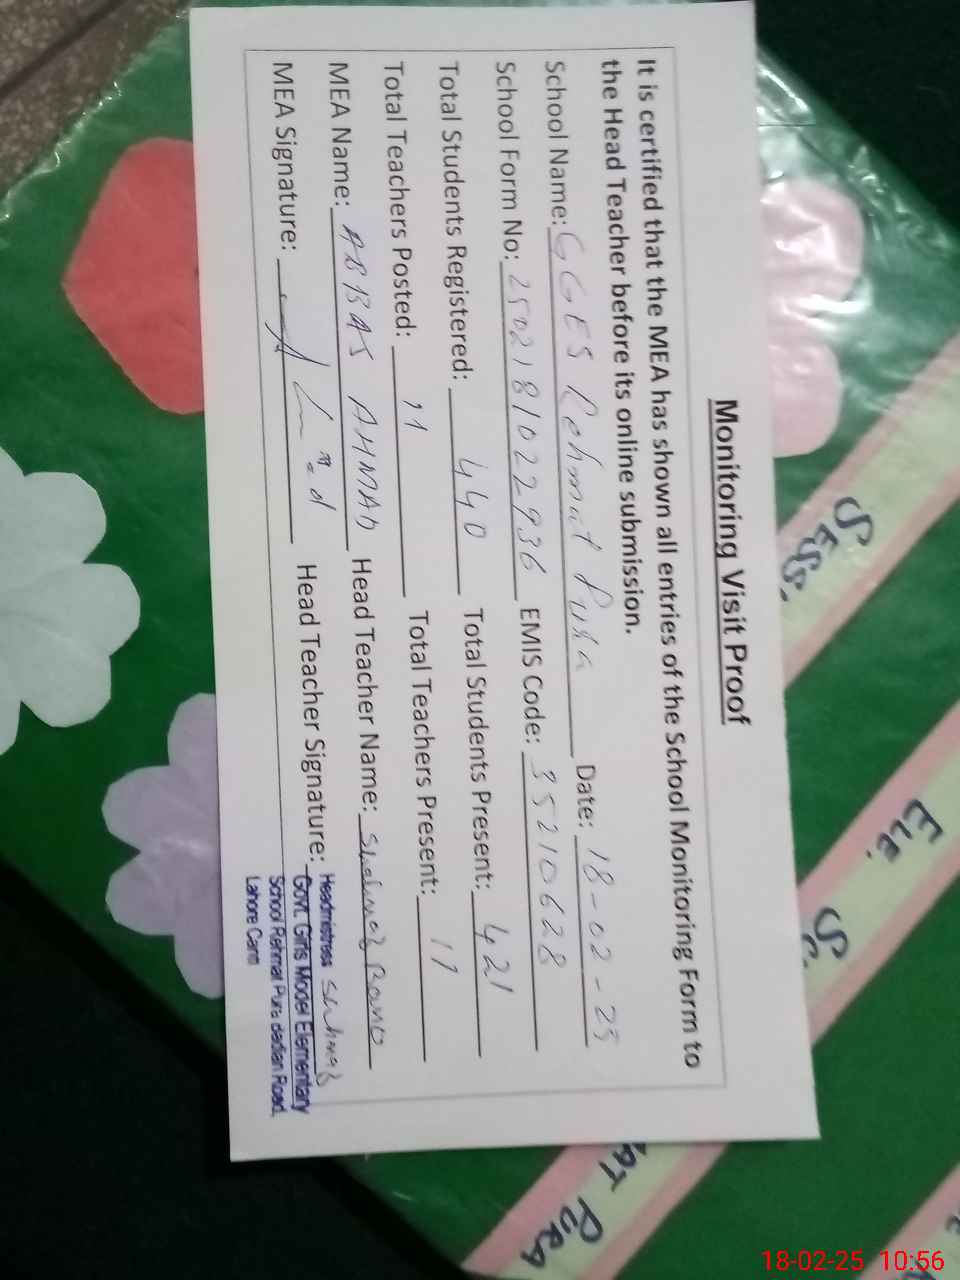 Monitoring Visit Proof
It is certified that the MEA has shown all entries of the School Monitoring Form to
the Head Teacher before its online submission.
School Name: GGES Rehmat Pura Date: 18-02-25
School Form No: 2502181022936 EMIS Code: 35210628
Total Students Registered: 440 Total Students Present: 421
Total Teachers Posted: 11 Total Teachers Present: 11
MEA Name: ABBAS AHMAD Head Teacher Name: Shahnaz Bano
MEA Signature: Head Teacher Signature: Shahnaz
Headmistress
Govt. Girls Model Elementary
School Rehmat Pura Road,
Lahore Cantt
SESS
ELE. S
AT PURA
18-02-25 10:56